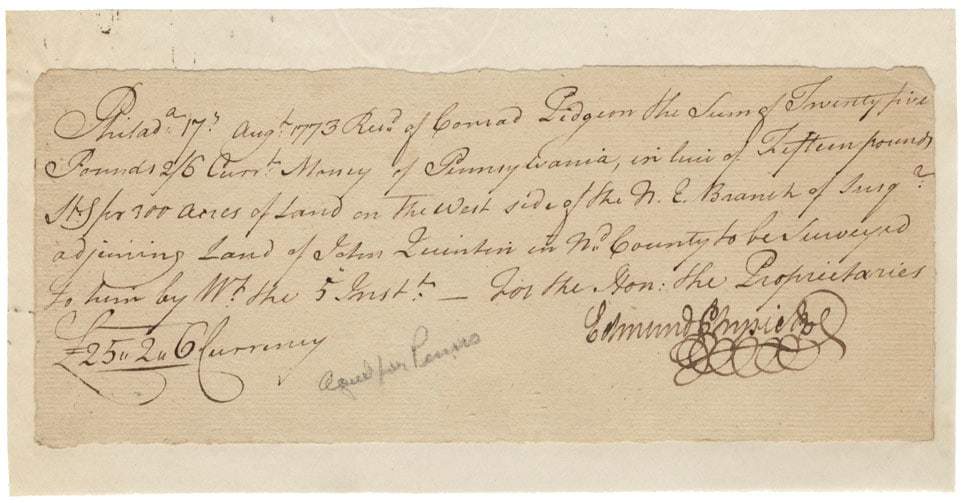 Philad.ª 17.th Aug.t 1773 Rec.d of Conrad Pidgeon the Sum of Twenty five
Pounds 2/6 Curr.t Money of Pennsylvania, in lieu of Fifteen pounds
St.g for 300 acres of Land on the West side of the N. E. Branch of Susq.ª
adjoining Land of John Quintin in N.d County to be Surveyed
to him by W.t the 5 Inst.t — For the Hon: the Proprietaries
£25 " 2 " 6 Currency
Edmund Physick